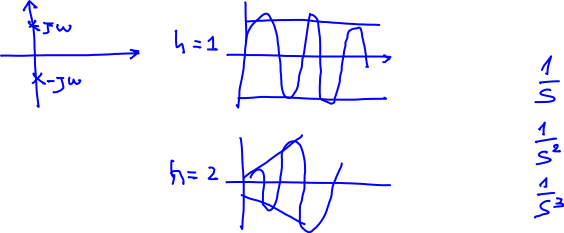 jw
-jw
h = 1
h = 2
1/s
1/s²
1/s³